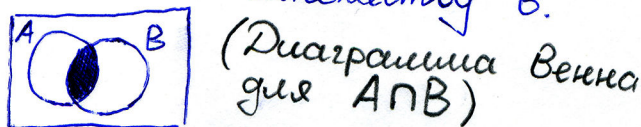 в.
A B
(Диаграмма Венна
для A∩B)